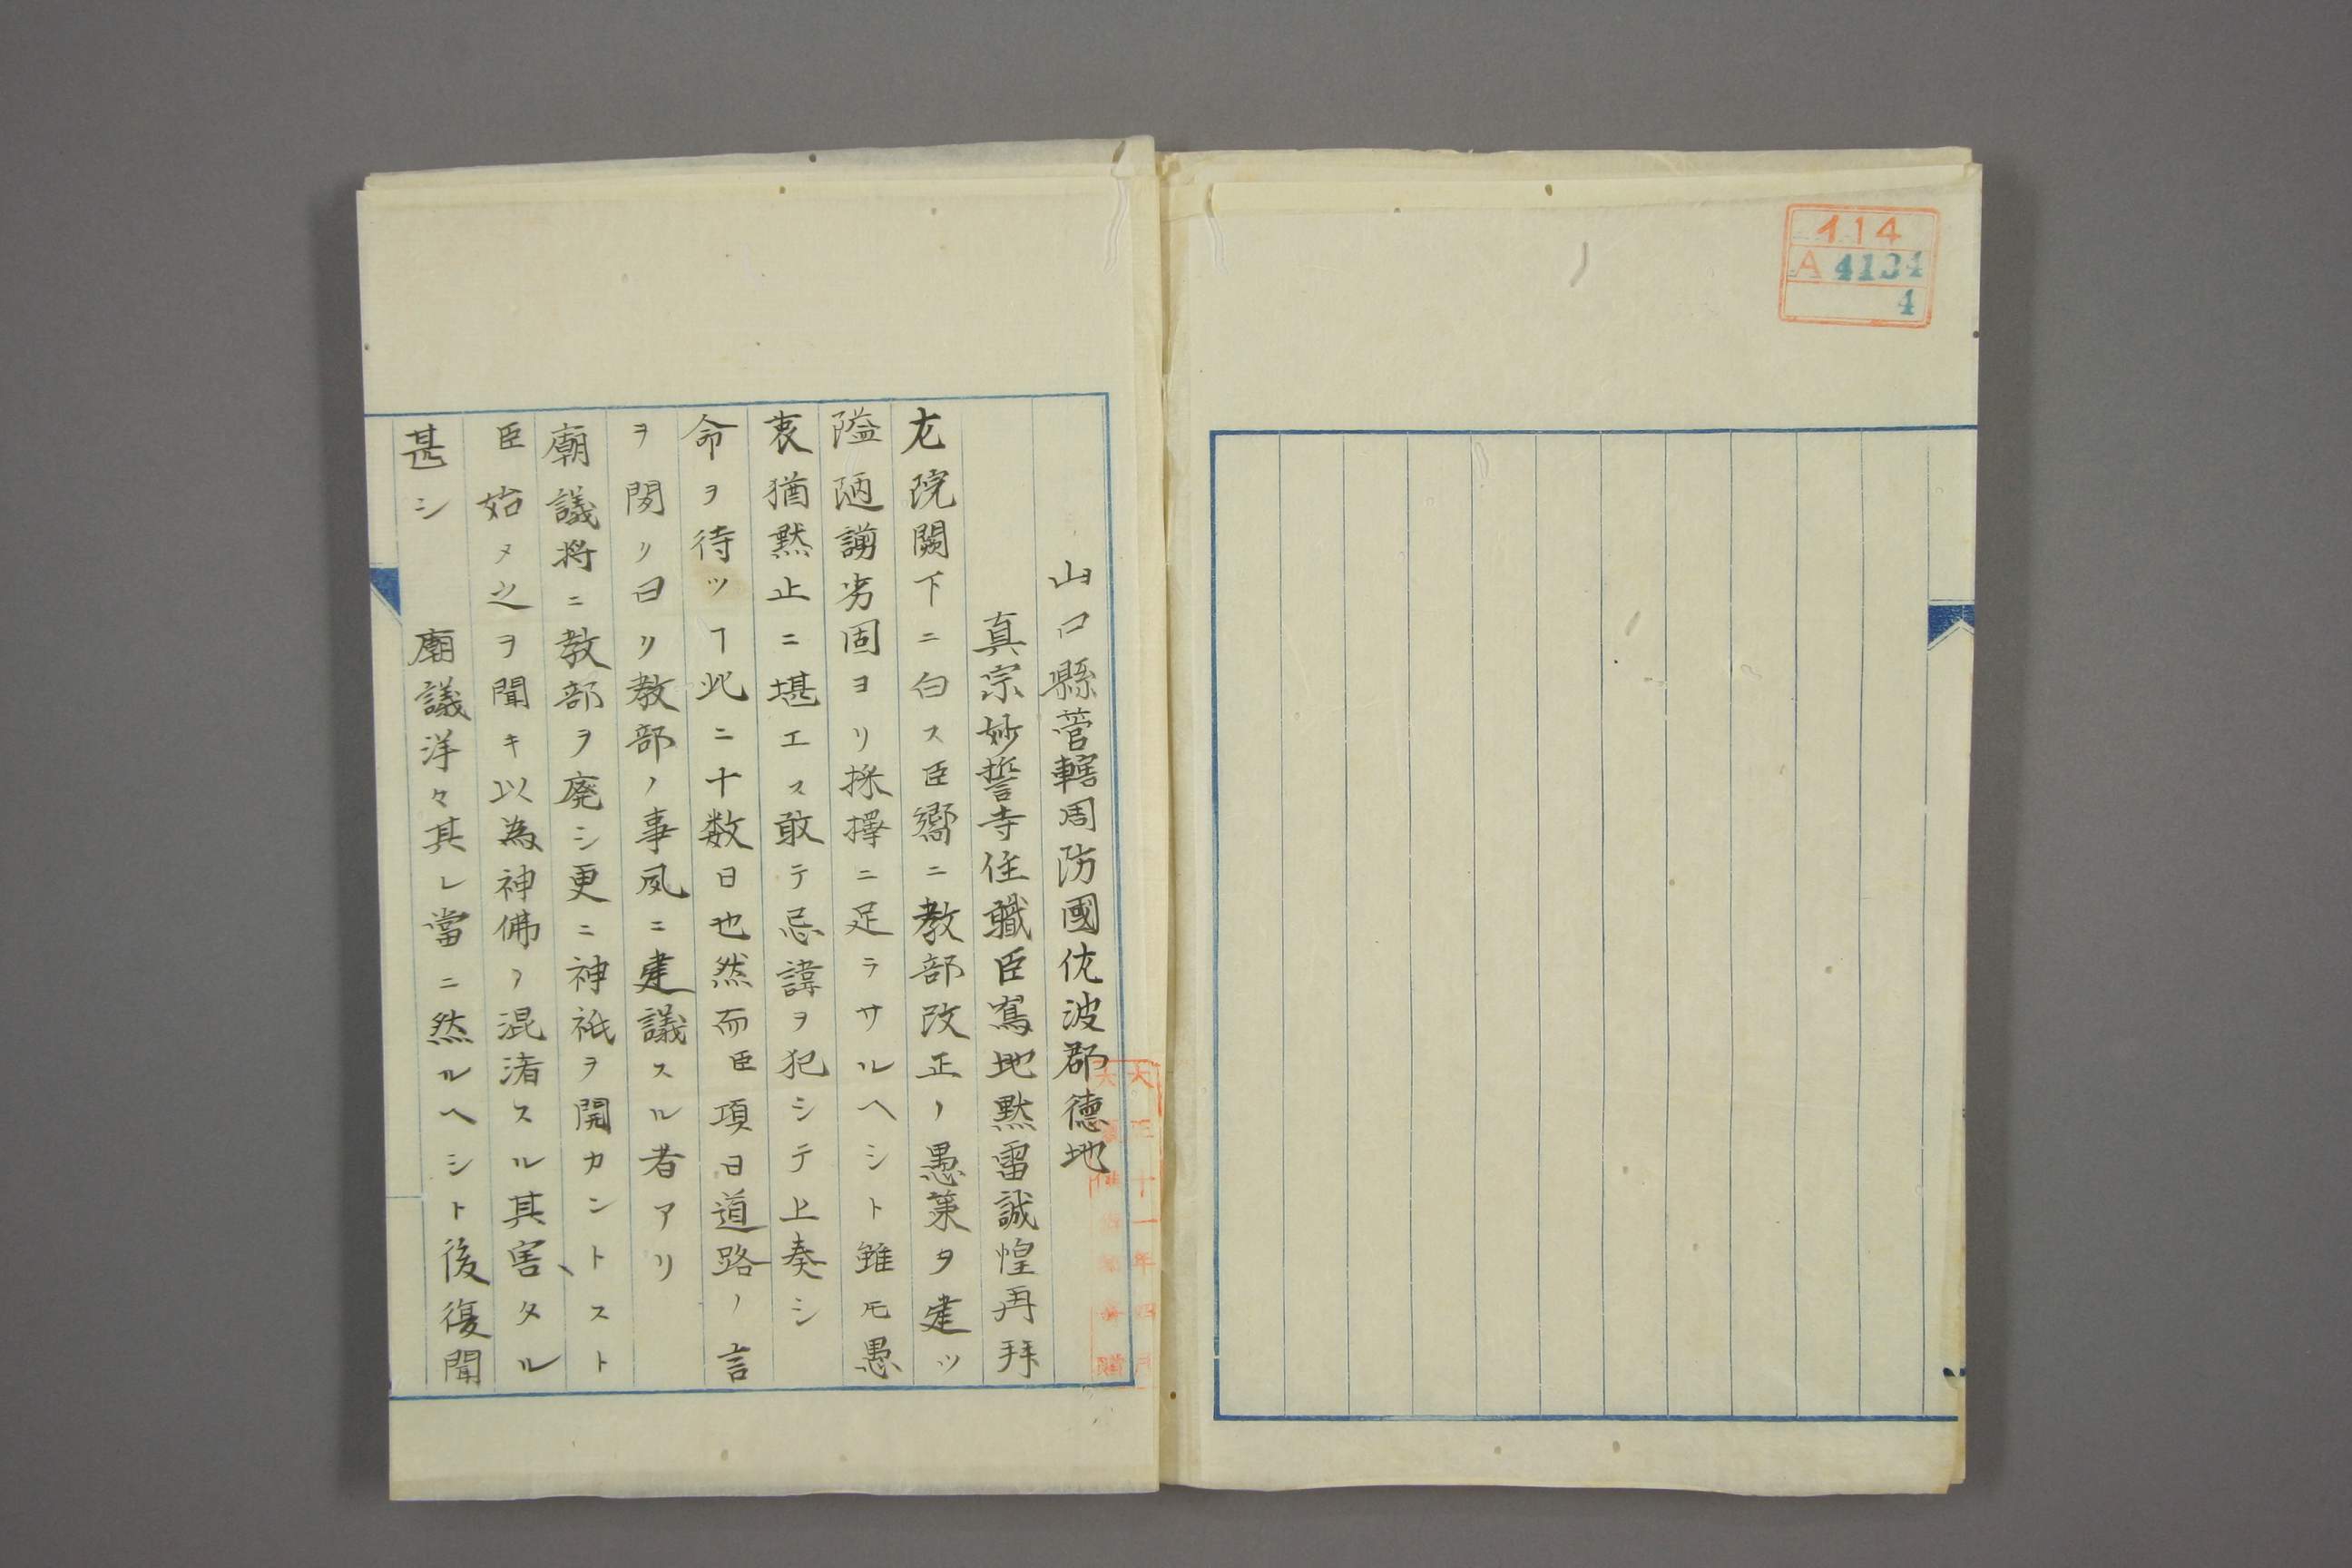 114
A 4134
4
山口縣菅轄周防國佐波郡德地
真宗妙誓寺住職臣寫地黙雷誠惶再拜
左院闕下ニ白ス臣嚮ニ教部改正ノ愚策ヲ建ツ
隘陋謭劣固ヨリ採擇ニ足ラサルヘシト雖𪜈愚
衷猶黙止ニ堪エス敢テ忌諱ヲ犯シテ上奏シ
命ヲ待ツヿ此ニ十数日也然而臣項日道路ノ言
ヲ関リ曰リ教部ノ事夙ニ建議スル者アリ
廟議将ニ教部ヲ廃シ更ニ神祇ヲ開カントスト
臣始メ之ヲ聞キ以為神佛ノ混淆スル其害タル
甚シ 廟議洋々其レ當ニ然ルヘシト後復聞
大正十一年四月
大隈侯爵家寄贈